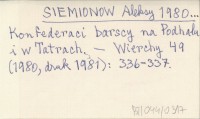 SIEMIONOW Aleksy 1980...
Konfederaci barscy na Podhalu
i w Tatrach. — Wierchy 49
(1980, druk 1981): 336-337.